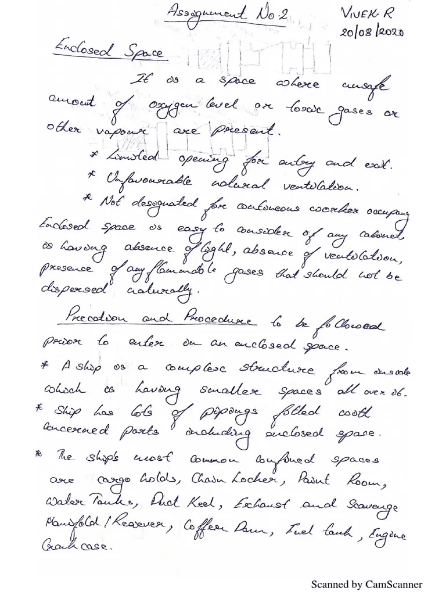 Assignment No 2
VIVEK. R
20/08/2020
Enclosed Space
It is a space where unsafe
amount of oxygen level or toxic gases or
other vapour are present.
* Limited opening for entry and exit.
* Unfavourable natural ventilation.
* Not designated for continuous worker occupany
Enclosed space is easy to consider of any cabined
is having absence of light, absence of ventilation,
presence of any flammable gases that should not be
dispersed naturally.
Precation and Procedure to be followed
prior to enter in an enclosed space.
* A ship is a complex structure from inside
which is having smaller spaces all over it.
* Ship has lots of pipings filled with
concerned parts including enclosed space.
* The ship's most common confined spaces
are cargo holds, Chain Locker, Paint Room,
Water Tanks, Duct Keel, Exhaust and Scavenge
Manifold / Receiver, Coffer Dam, Fuel tank, Engine
Crank case.
Scanned by CamScanner